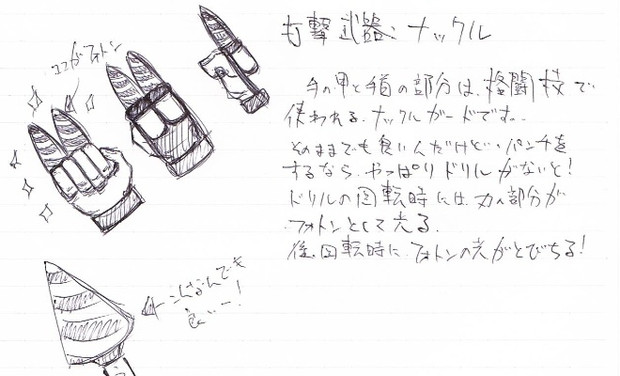 打撃武器:ナックル
ココがフォトン
手の甲と手首の部分は、格闘技で
使われる、ナックルガードです。
そのままでも良いんだけど、パンチを
するなら、やっぱりドリルがないと!
ドリルの回転時には、刃の部分が
フォトンとして光る。
後、回転時に、フォトンの光がとびちる!
こんなんでも
良いー!